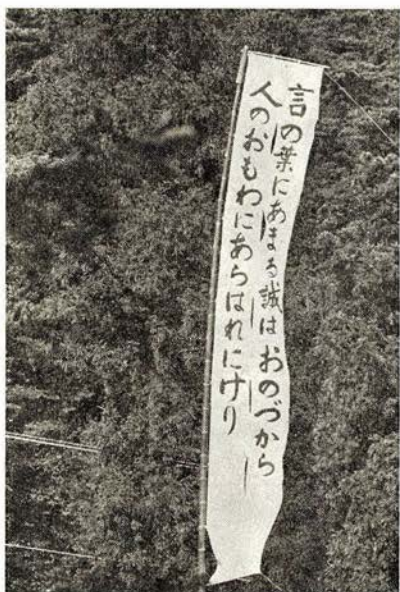 言の葉にあまる誠はおのづから
人のおもわにあらはれにけり